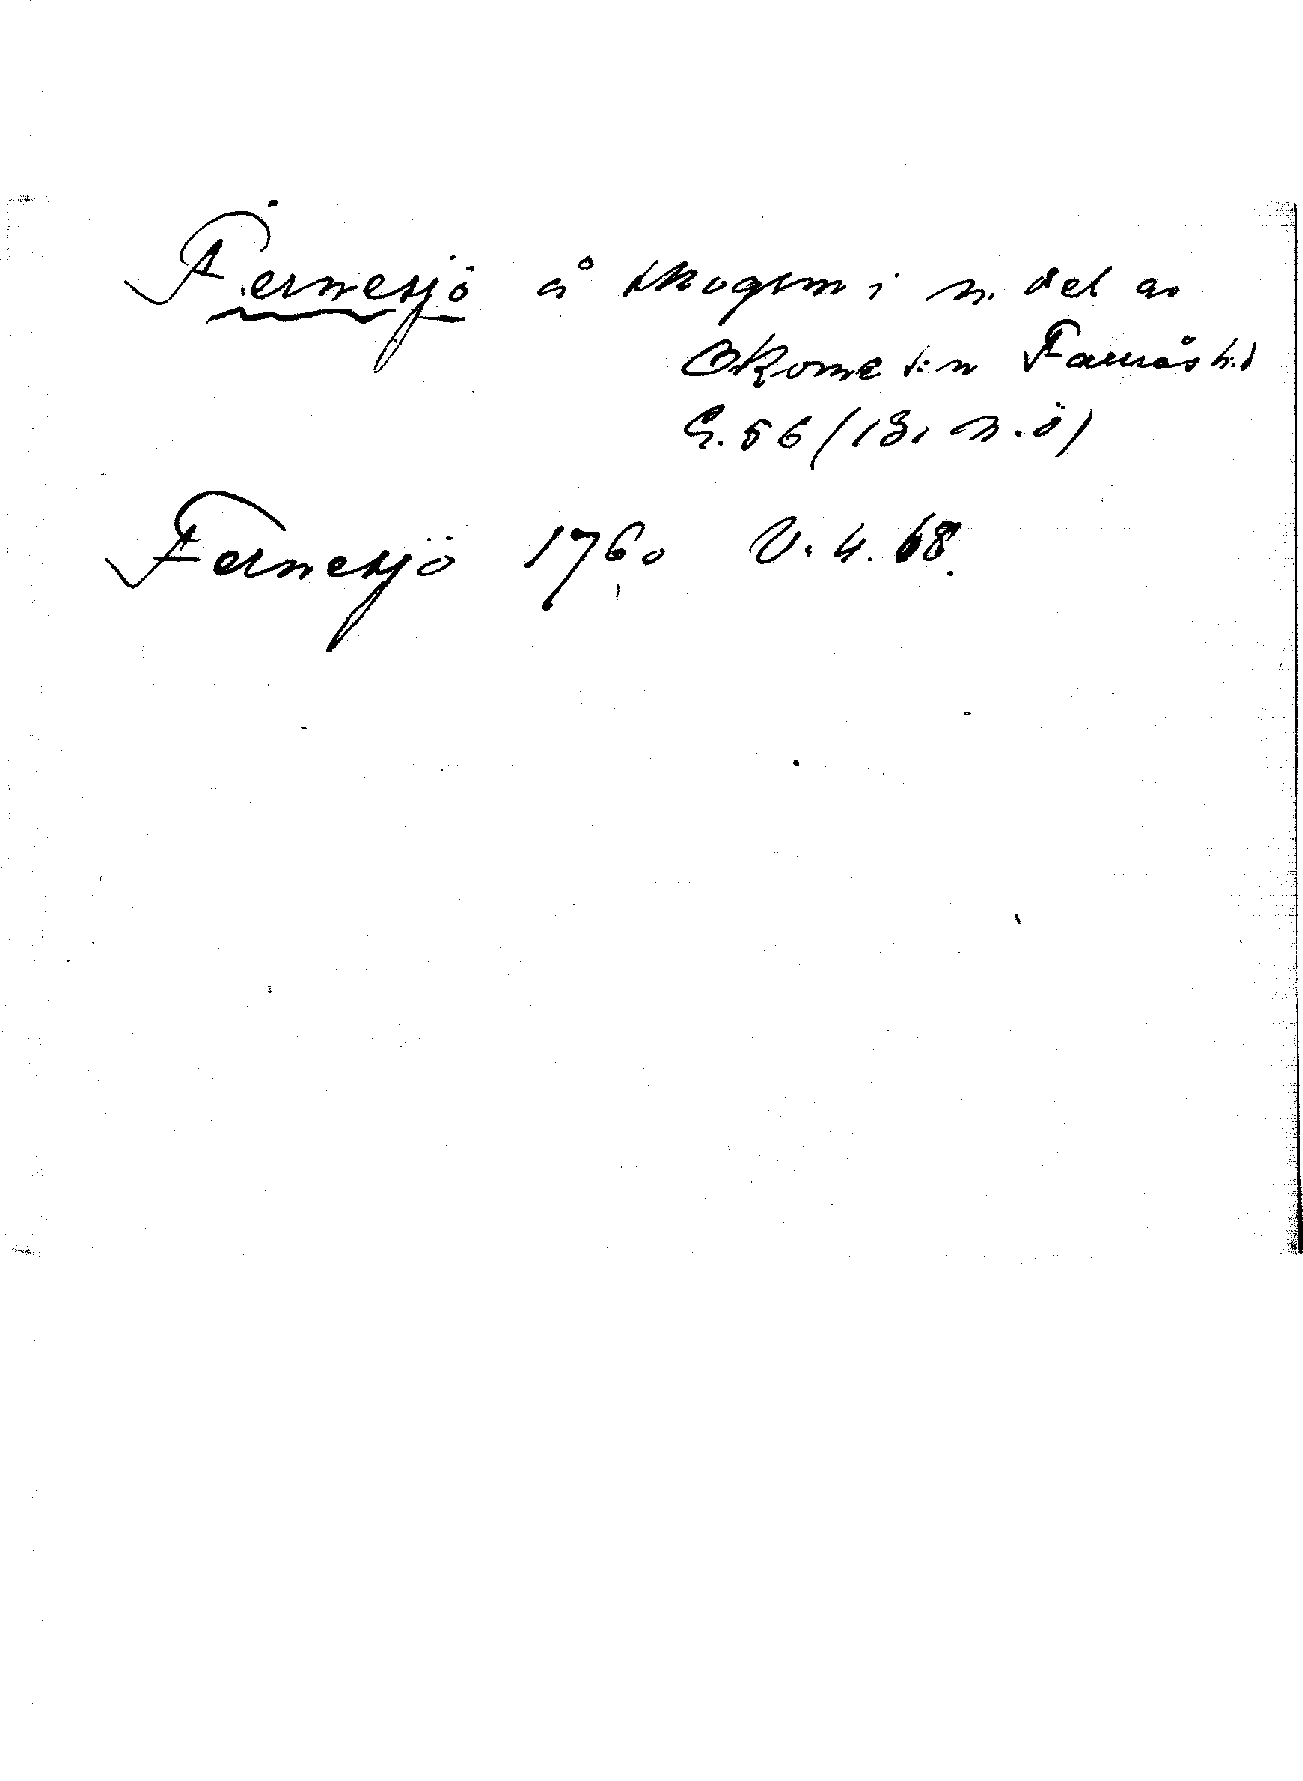 Fernesjö å skogen i n. del av
Okome s:n Faurås h:d
G.E. 56 (13, n.ö)
Fernesjö 1760 V. 4. 68.